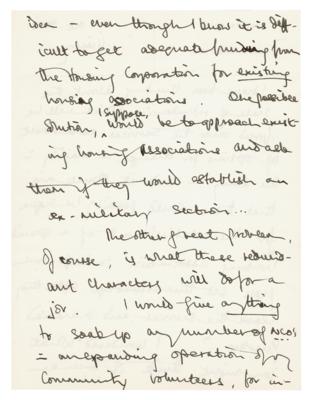 idea – even though I know it is diff-
icult to get adequate funding from
the Housing Corporation for existing
housing associations. One possible
solution, I suppose, would be to approach exist-
ing housing associations and ask
them if they would establish an
ex-military section...
The other great problem,
of course, is what these redund-
ant characters will do for a
job. I would give anything
to soak up any number of NCOs
in an expanding operation of my
Community volunteers, for in-